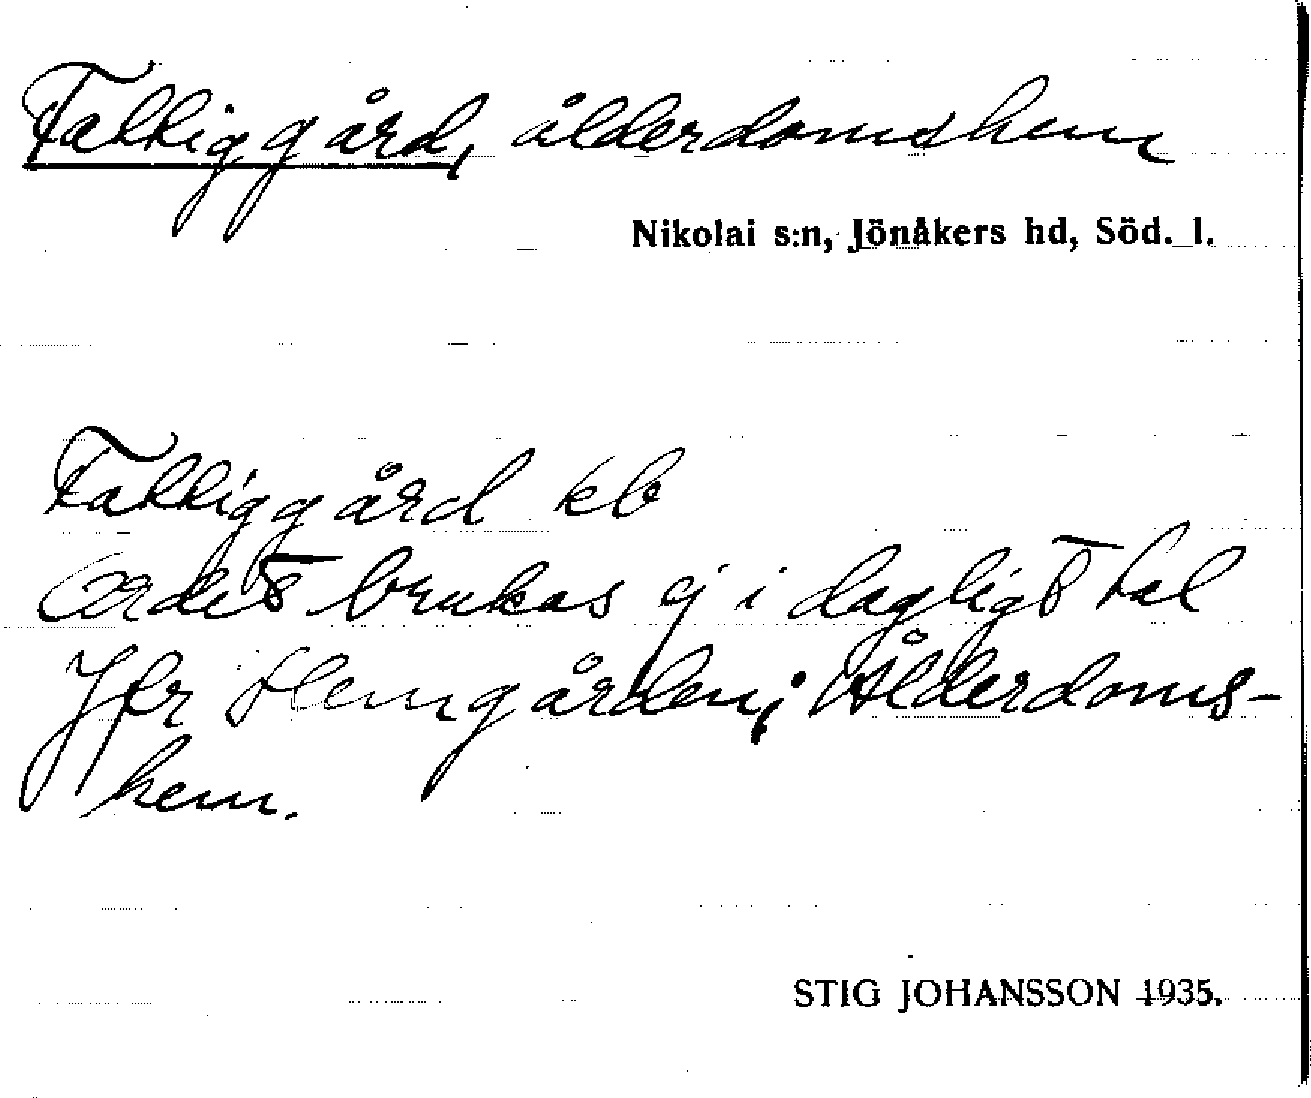 Fattiggård, ålderdomshem
Nikolai s:n, Jönåkers hd, Söd. l.
Fattiggård kb
Ordet brukas ej i dagligt tal
Jfr Hemgården; Ålderdoms-
hem.
STIG JOHANSSON 1935.